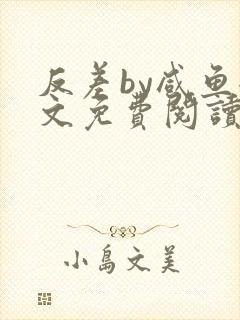 反差by咸鱼
文免费閱讀
小島文美